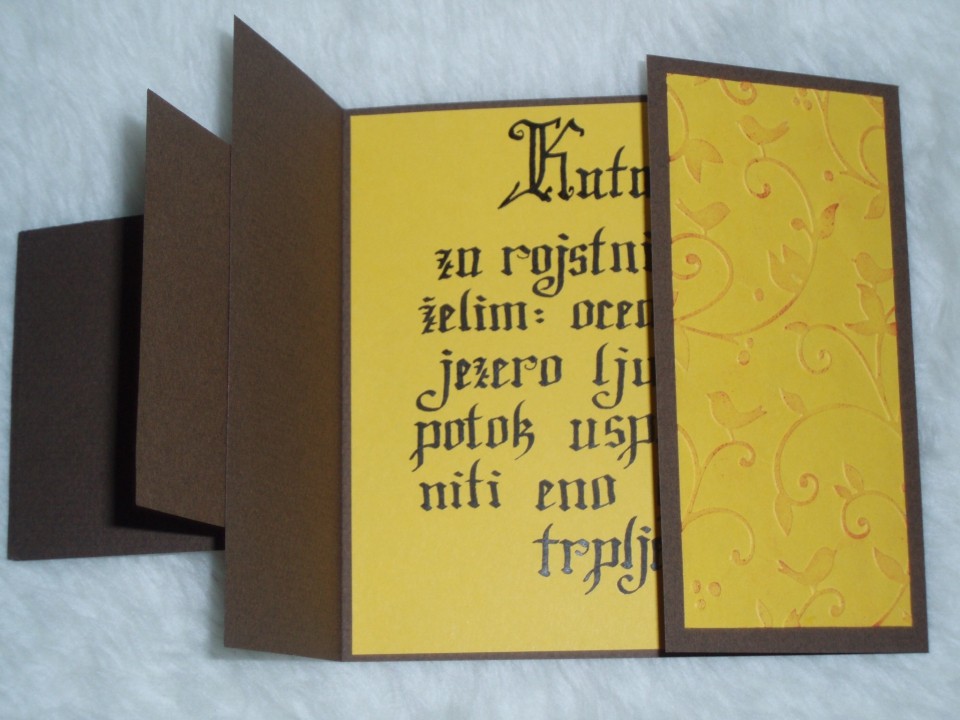 Kata
za rojstni
želim: ocea
jezero lju
potok usp
niti eno
trplj